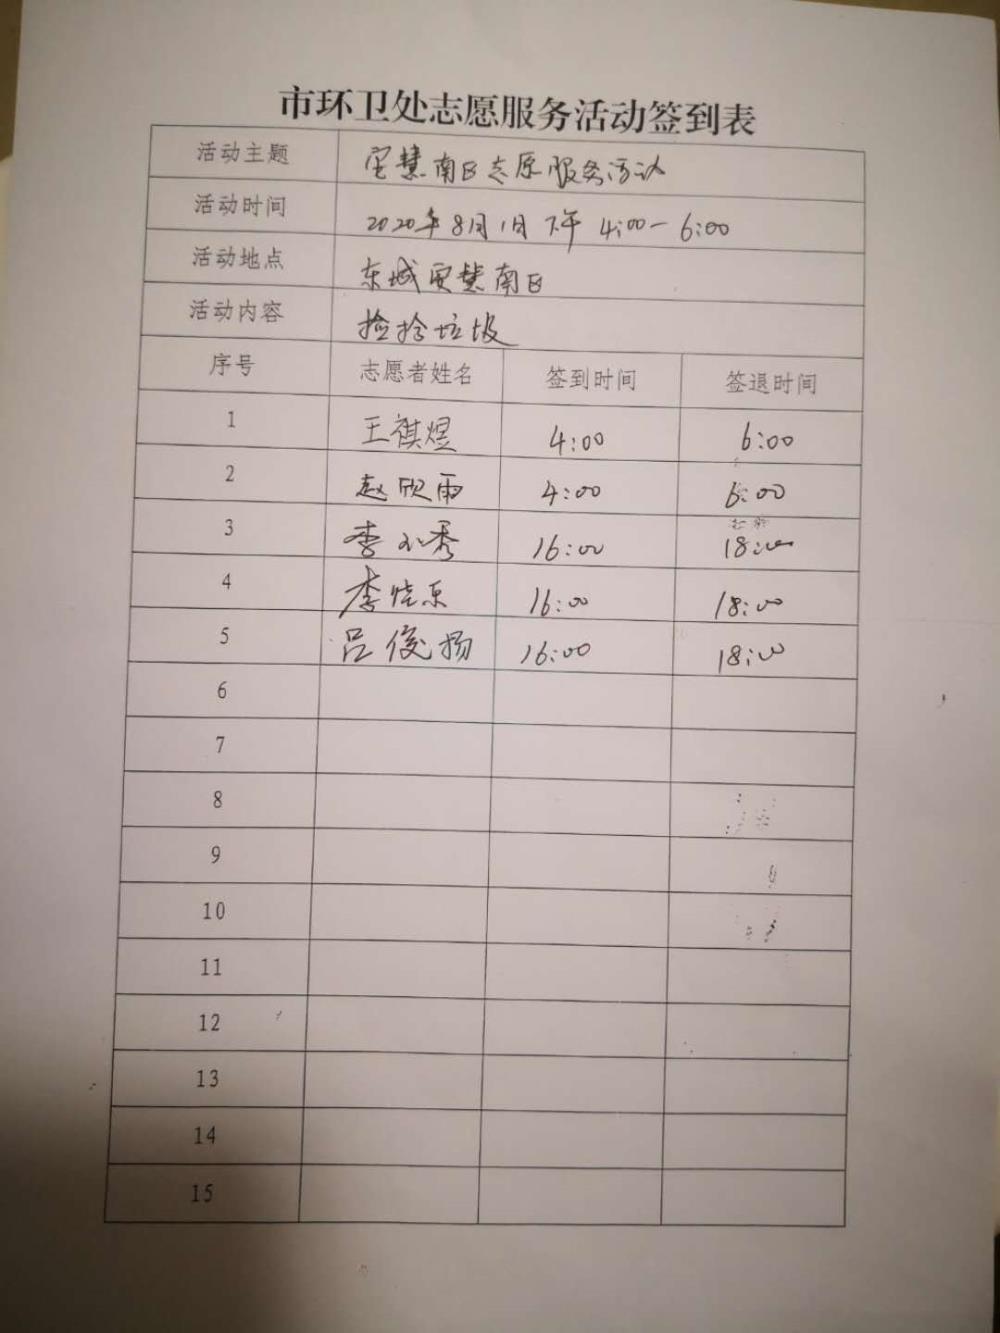 市环卫处志愿服务活动签到表
活动主题 安慧南区志愿服务活动
活动时间 2020年8月1日 下午 4:00-6:00
活动地点 东城安慧南区
活动内容 捡拾垃圾
序号 志愿者姓名 签到时间 签退时间
1 王祺煜 4:00 6:00
2 赵欣雨 4:00 6:00
3 李 秀 16:00 18:00
4 李晓乐 16:00 18:00
5 吕俊扬 16:00 18:00
6
7
8
9
10
11
12
13
14
15